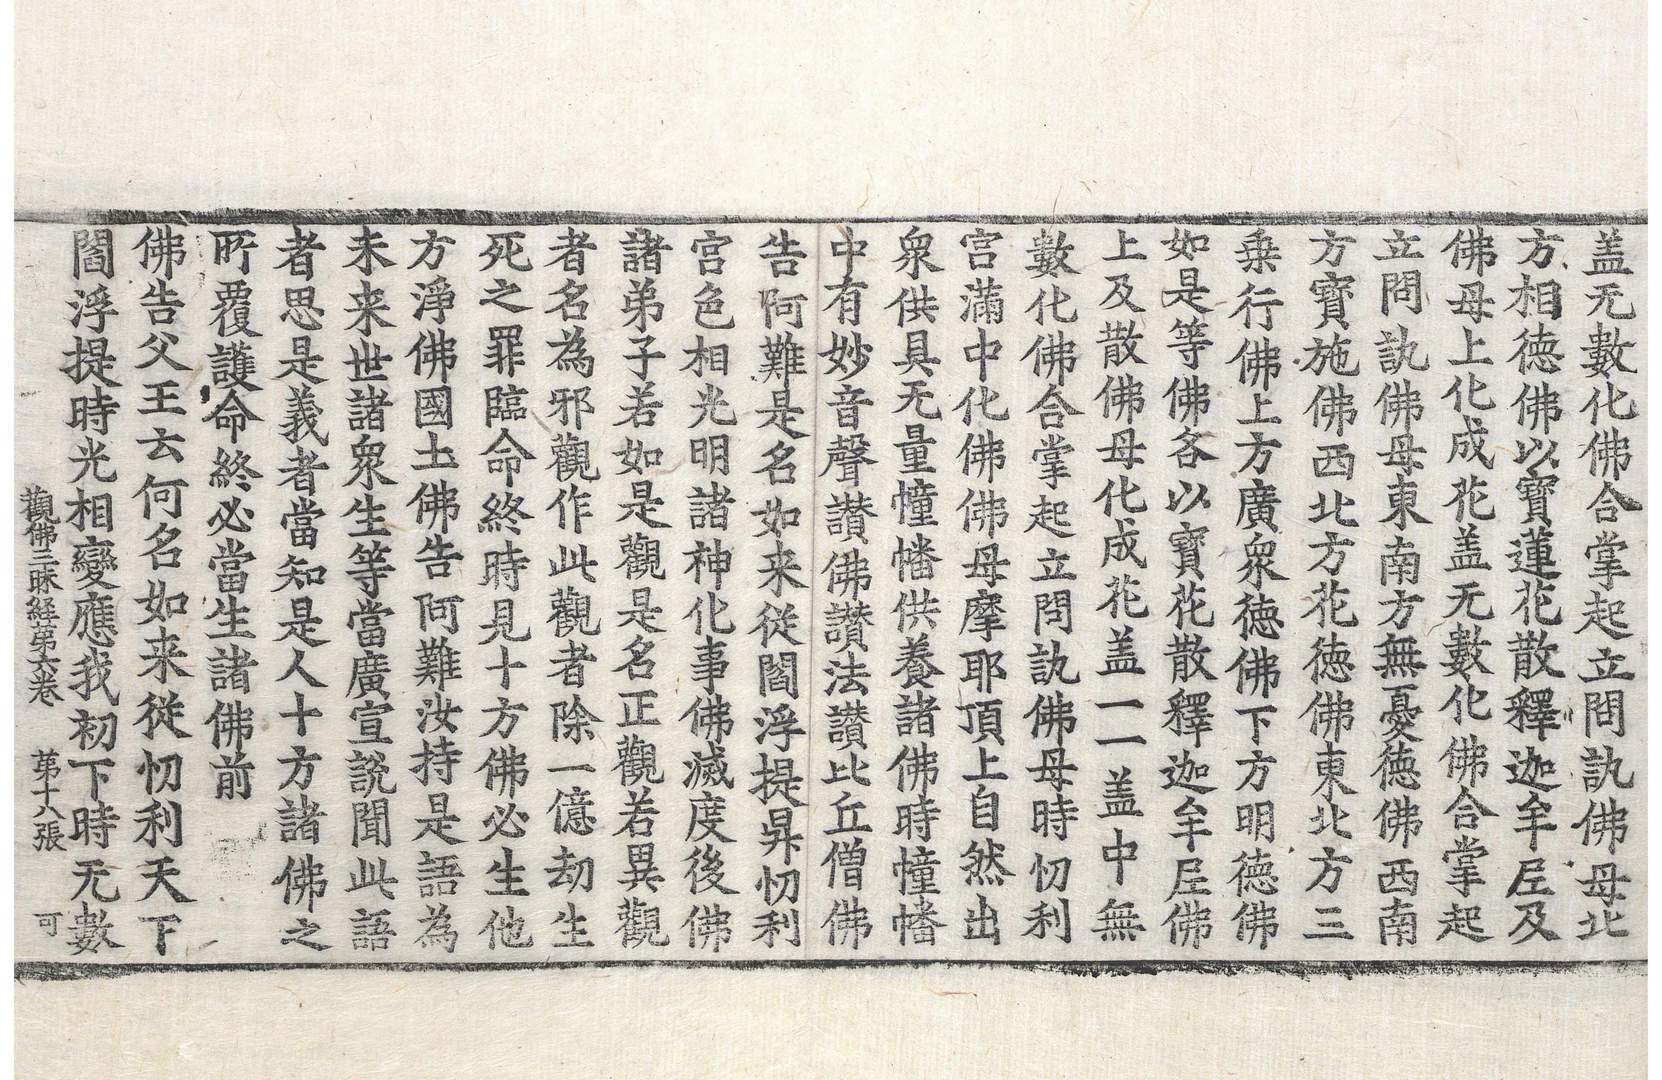 盖无數化佛合掌起立問訊佛母北
方相德佛以寶蓮花散釋迦牟尼及
佛母上化成花盖无數化佛合掌起
立問訊佛母東南方無憂德佛西南
方寶施佛西北方花德佛東北方三
乗行佛上方廣衆德佛下方明德佛
如是等佛各以寶花散釋迦牟尼佛
上及散佛母化成花盖一一盖中無
數化佛合掌起立問訊佛母時忉利
宫滿中化佛佛母摩耶頂上自然出
衆供具无量幢幡供養諸佛時幢幡
中有妙音聲讃佛讃法讃比丘僧佛
告阿難是名如来從閻浮提昇忉利
宫色相光明諸神化事佛滅度後佛
諸弟子若如是觀是名正觀若異觀
者名為邪觀作此觀者除一億劫生
死之罪臨命終時見十方佛必生他
方淨佛國土佛告阿難汝持是語為
未来世諸衆生等當廣宣說聞此語
者思是義者當知是人十方諸佛之
所覆護命終必當生諸佛前
佛告父王云何名如来從忉利天下
閻浮提時光相變應我初下時无數
觀佛三昧経第六卷 第十八張 可